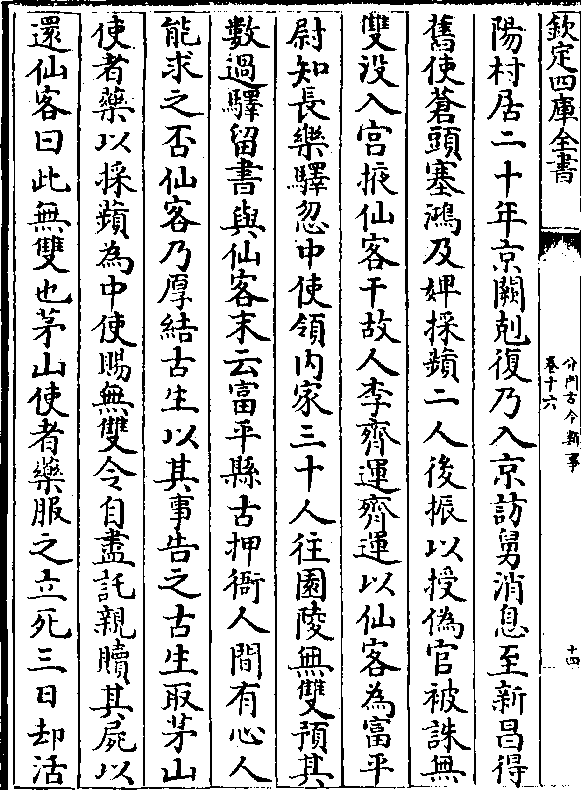 欽定四庫全書
分門古今類事
卷十六
十四
陽村居二十年京闕剋復乃入京訪舅消息至新昌得
舊使蒼頭塞鴻及婢採蘋二人後振以授偽官被誅無
雙没入宫掖仙客干故人李齊運齊運以仙客為富平
尉知長樂驛忽中使領内家三十人往園陵無雙預其
數過驛留書與仙客末云富平縣古押衙人間有心人
能求之否仙客乃厚結古生以其事告之古生取茅山
使者藥以採蘋為中使賜無雙令自盡託親贖其屍以
還仙客曰此無雙也茅山使者藥服之立死三日却活